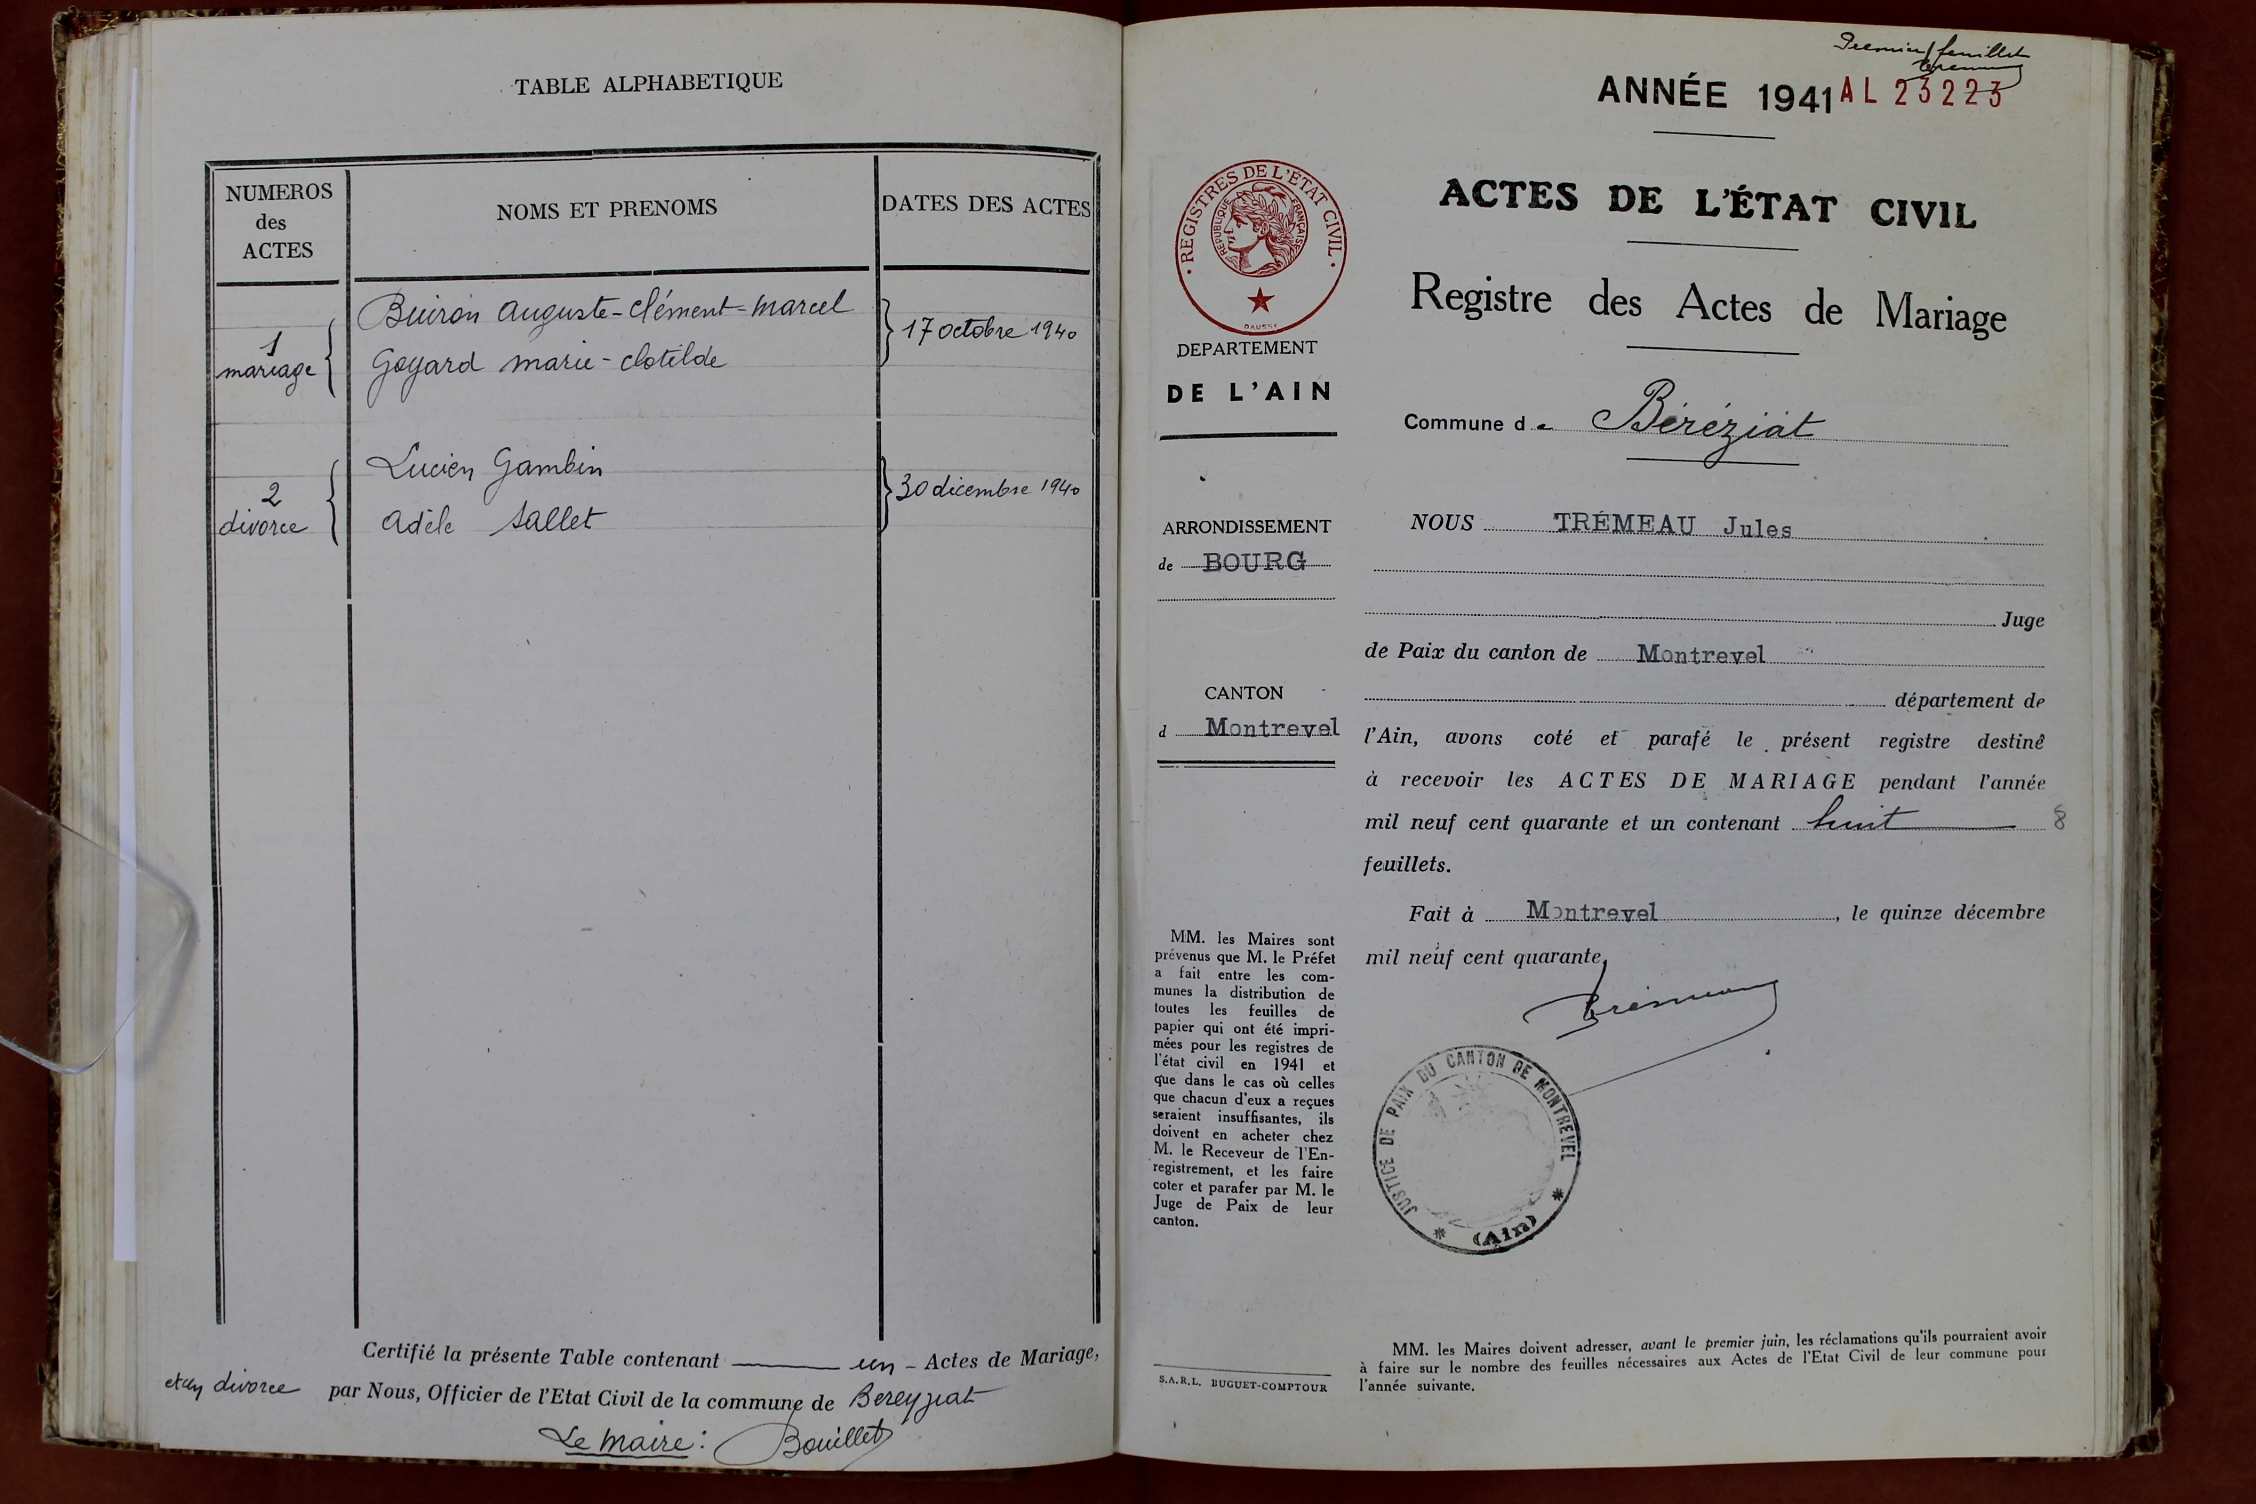 TABLE ALPHABETIQUE
NUMEROS
des
ACTES
NOMS ET PRENOMS
DATES DES ACTES
1
mariage
Buiron Auguste-Clément-Marcel
Goyard Marie-Clotilde
17 octobre 1940
2
divorce
Lucien Gambin
Adèle Sallet
30 décembre 1940
Certifié la présente Table contenant un - Actes de Mariage,
et un divorce par Nous, Officier de l'Etat Civil de la commune de Bereyziat
Le Maire: Bouillet
Premier feuillet
ANNÉE 1941 AL 23223
ACTES DE L'ÉTAT CIVIL
Registre des Actes de Mariage
Commune de Béréziat
· REGISTRES DE L'ÉTAT CIVIL ·
RÉPUBLIQUE FRANÇAISE
DAUSSY
DEPARTEMENT
DE L'AIN
ARRONDISSEMENT
de BOURG
CANTON
d Montrevel
NOUS TRÉMEAU Jules
Juge
de Paix du canton de Montrevel
département de
l'Ain, avons coté et parafé le présent registre destiné
à recevoir les ACTES DE MARIAGE pendant l'année
mil neuf cent quarante et un contenant huit 8
feuillets.
Fait à Montrevel, le quinze décembre
mil neuf cent quarante.
Trémeau
JUSTICE DE PAIX DU CANTON DE MONTREVEL
* (Ain) *
MM. les Maires sont
prévenus que M. le Préfet
a fait entre les com-
munes la distribution de
toutes les feuilles de
papier qui ont été impri-
mées pour les registres de
l'état civil en 1941 et
que dans le cas où celles
que chacun d'eux a reçues
seraient insuffisantes, ils
doivent en acheter chez
M. le Receveur de l'En-
registrement, et les faire
coter et parafer par M. le
Juge de Paix de leur
canton.
S.A.R.L. BUGUET-COMPTOUR
MM. les Maires doivent adresser, avant le premier juin, les réclamations qu'ils pourraient avoir
à faire sur le nombre des feuilles nécessaires aux Actes de l'Etat Civil de leur commune pour
l'année suivante.